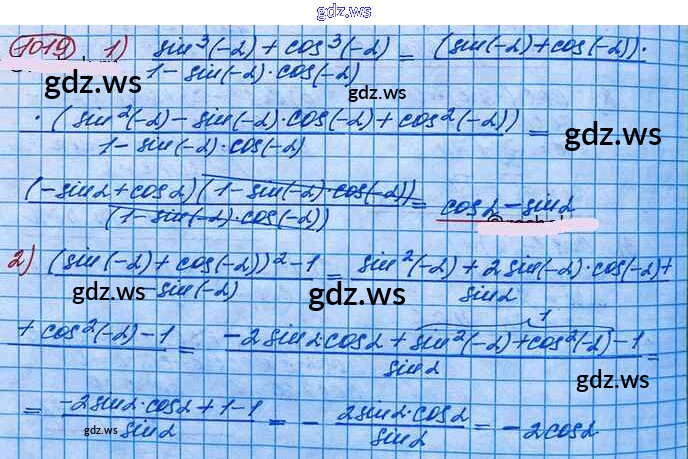 gdz.ws
1019 1) sin³(-α) + cos³(-α) / 1 - sin(-α)·cos(-α) = (sin(-α)+cos(-α))·
gdz.ws
gdz.ws
·(sin²(-α) - sin(-α)·cos(-α) + cos²(-α)) / 1 - sin(-α)·cos(-α) =
gdz.ws
(-sinα + cosα)(1 - sin(-α)·cos(-α)) / (1 - sin(-α)·cos(-α)) = cosα - sinα
2) (sin(-α) + cos(-α))² - 1 / -sin(-α) = sin²(-α) + 2sin(-α)·cos(-α) + / sinα
gdz.ws
gdz.ws
gdz.ws
+ cos²(-α) - 1 = -2sinα·cosα + sin²(-α) + cos²(-α) - 1 / sinα =
1
gdz.ws
= -2sinα·cosα + 1 - 1 / sinα = - 2sinα·cosα / sinα = -2cosα
gdz.ws
gdz.ws